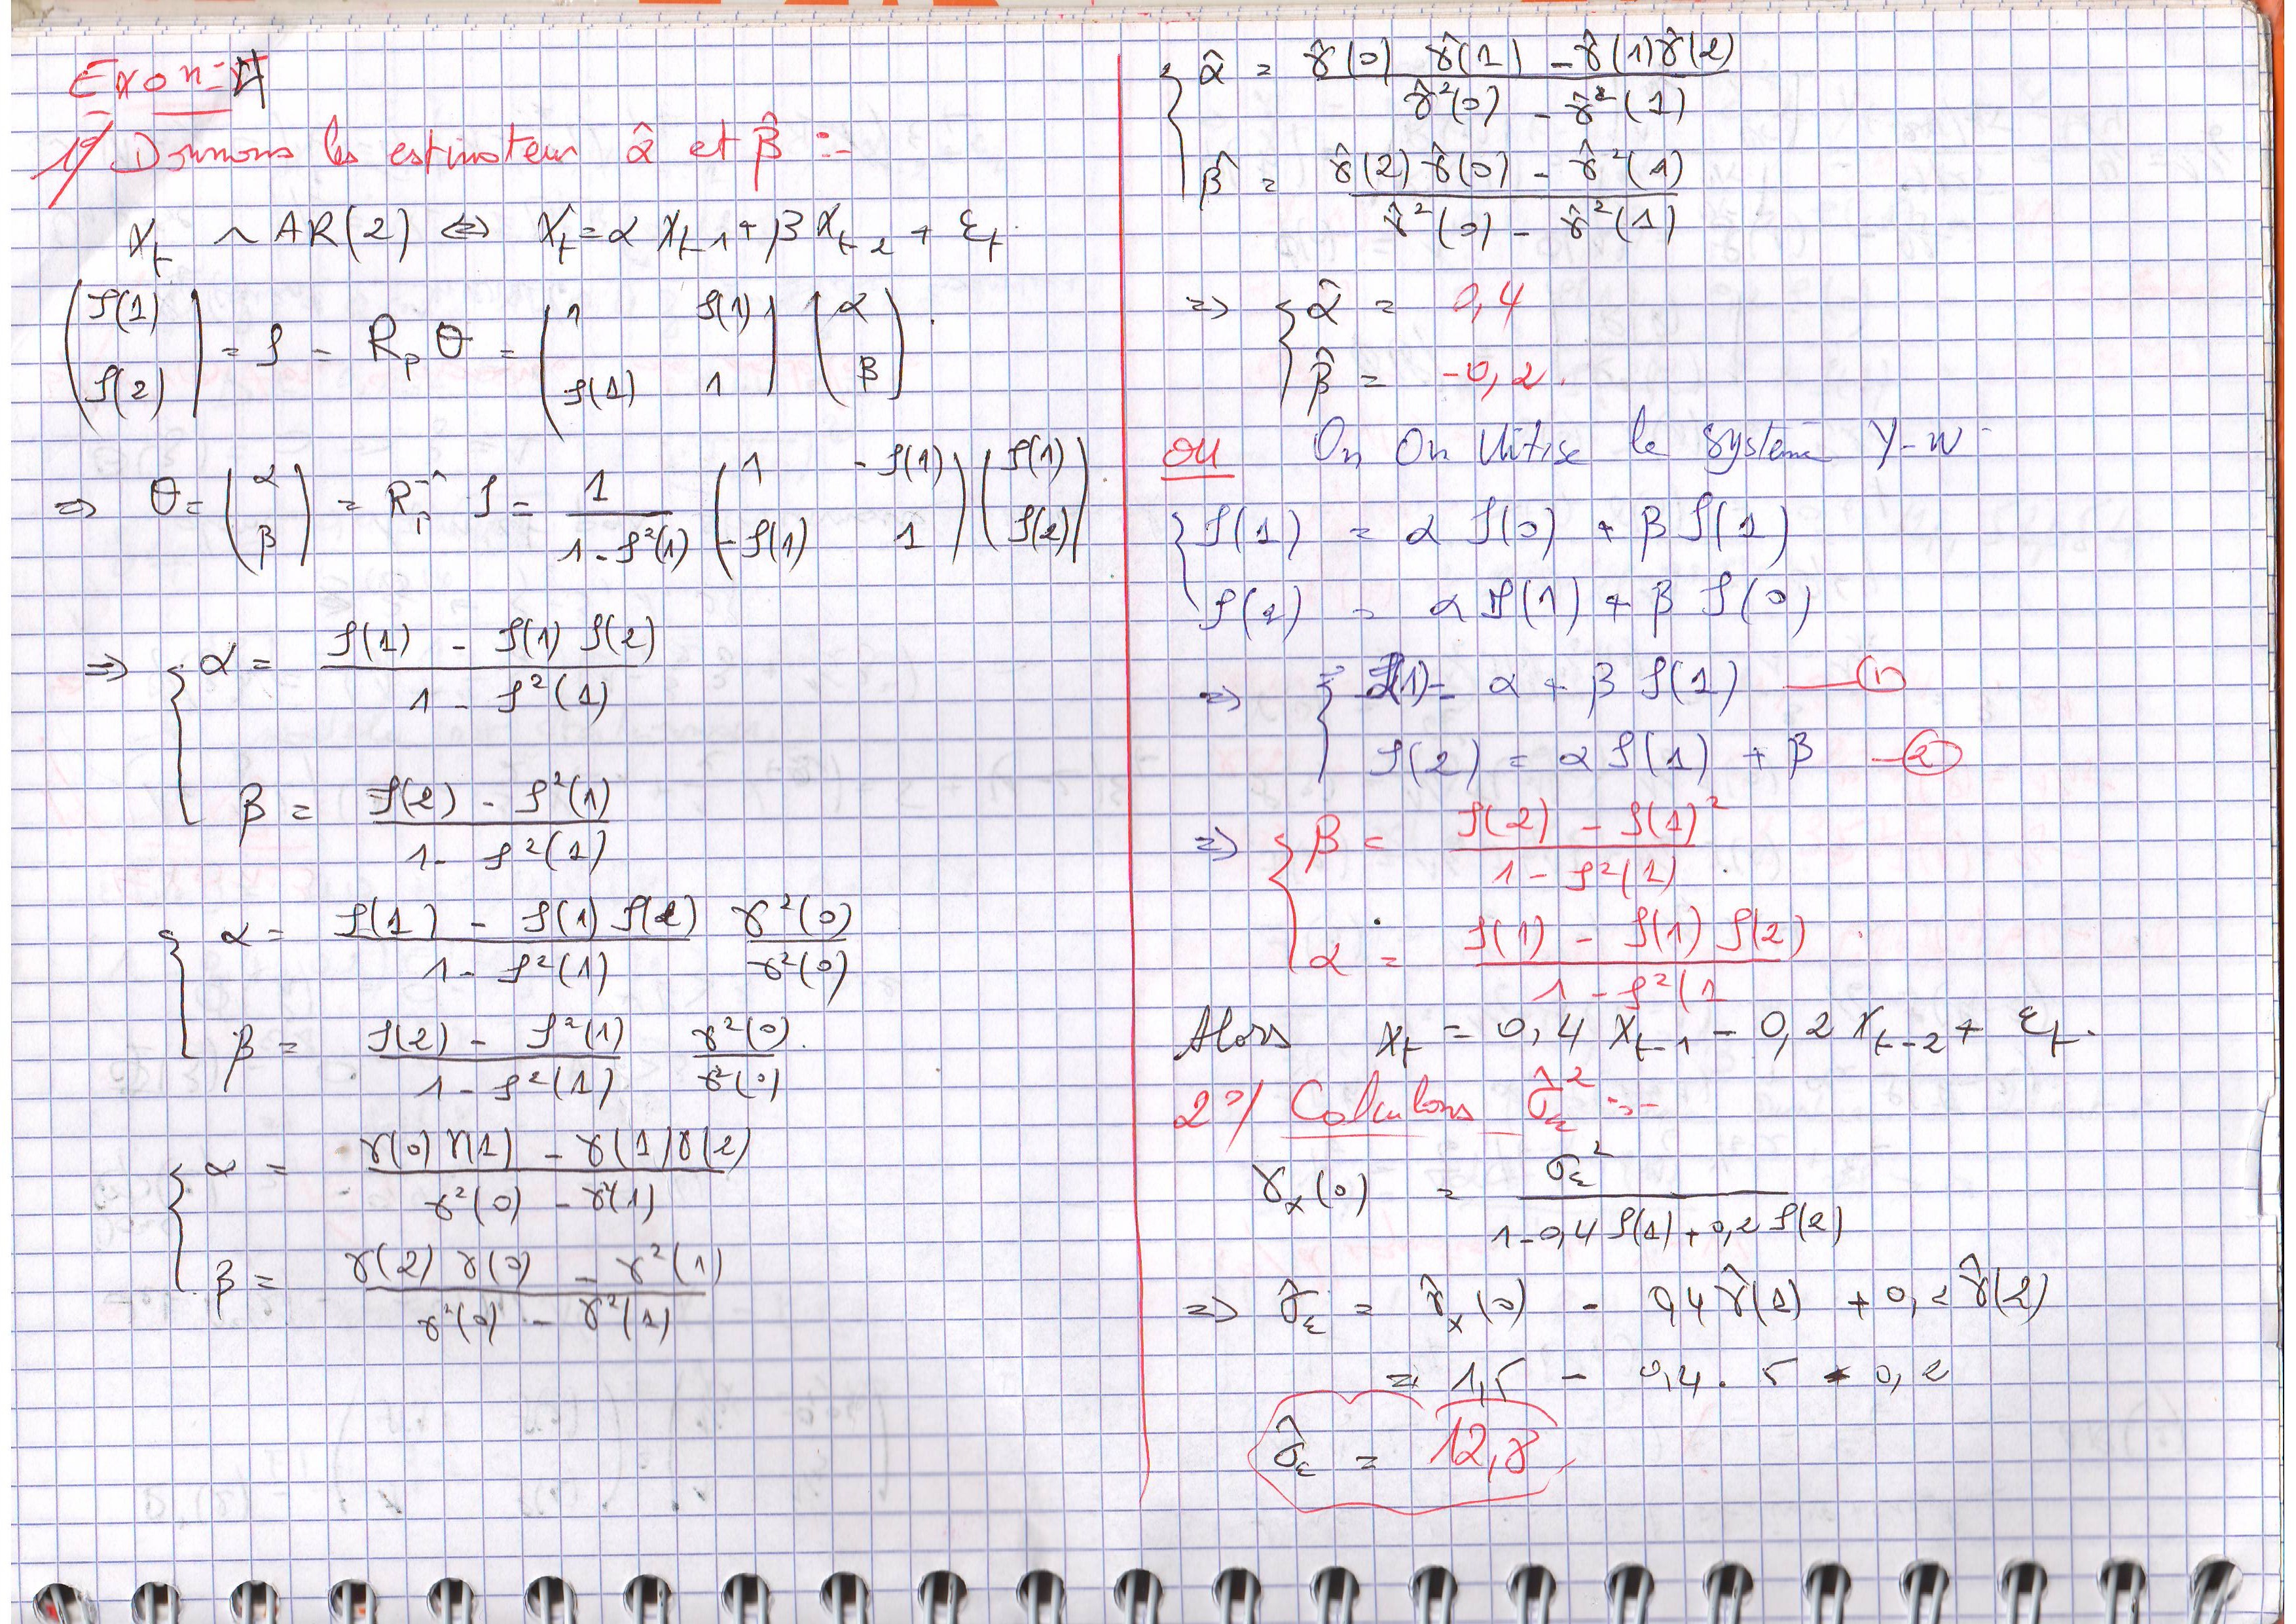 Exo n=4
1°/ Donnons les estimateur α̂ et β̂ :-
X_t ~ AR(2) ⇔ X_t = α X_{t-1} + β X_{t-2} + ε_t.
(ρ(1) ρ(2)) = ρ = R_p θ = (1 ρ(1) ρ(1) 1) (α β).
⇒ θ = (α β) = R_p^{-1} ρ = 1/(1-ρ²(1)) (1 -ρ(1) -ρ(1) 1) (ρ(1) ρ(2)).
⇒ { α = (ρ(1) - ρ(1) ρ(2)) / (1 - ρ²(1))
β = (ρ(2) - ρ²(1)) / (1 - ρ²(1))
{ α = (ρ(1) - ρ(1) ρ(2)) / (1 - ρ²(1)) γ²(0)/γ²(0)
β = (ρ(2) - ρ²(1)) / (1 - ρ²(1)) γ²(0)/γ²(0).
{ α = (γ(0) γ(1) - γ(1) γ(2)) / (γ²(0) - γ²(1))
β = (γ(2) γ(0) - γ²(1)) / (γ²(0) - γ²(1))
{ α̂ = (γ̂(0) γ̂(1) - γ̂(1) γ̂(2)) / (γ̂²(0) - γ̂²(1))
β̂ = (γ̂(2) γ̂(0) - γ̂²(1)) / (γ̂²(0) - γ̂²(1))
⇒ { α̂ = 0,4
β̂ = -0,2.
ou On On Utise le système Y-W
{ ρ(1) = α ρ(0) + β ρ(1)
ρ(2) = α ρ(1) + β ρ(0)
⇒ { ρ(1) = α + β ρ(1) —(1)
ρ(2) = α ρ(1) + β —(2)
⇒ { β = (ρ(2) - ρ(1)²) / (1 - ρ²(1)).
α = (ρ(1) - ρ(1) ρ(2)) / (1 - ρ²(1
Alors X_t = 0,4 X_{t-1} - 0,2 X_{t-2} + ε_t.
2°/ Calculons σ̂²_ε :-
γ_x(0) = σ_ε² / (1 - 0,4 ρ(1) + 0,2 ρ(2))
⇒ σ̂_ε = γ̂_x(0) - 0,4 γ̂(1) + 0,2 γ̂(2)
= 1,5 - 0,4. 5 - 0,2
σ̂_ε = 12,8